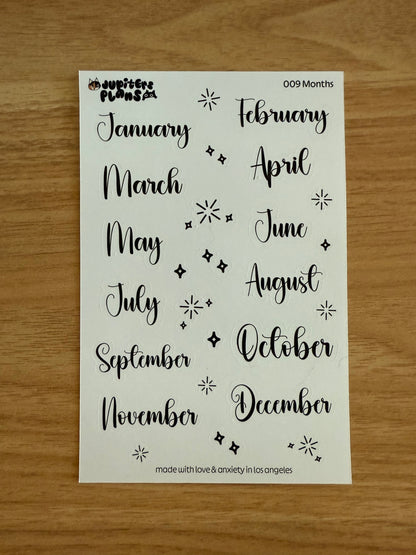 Jupiters
Plans
009 Months
January
February
March
April
May
June
July
August
September
October
November
December
made with love & anxiety in los angeles